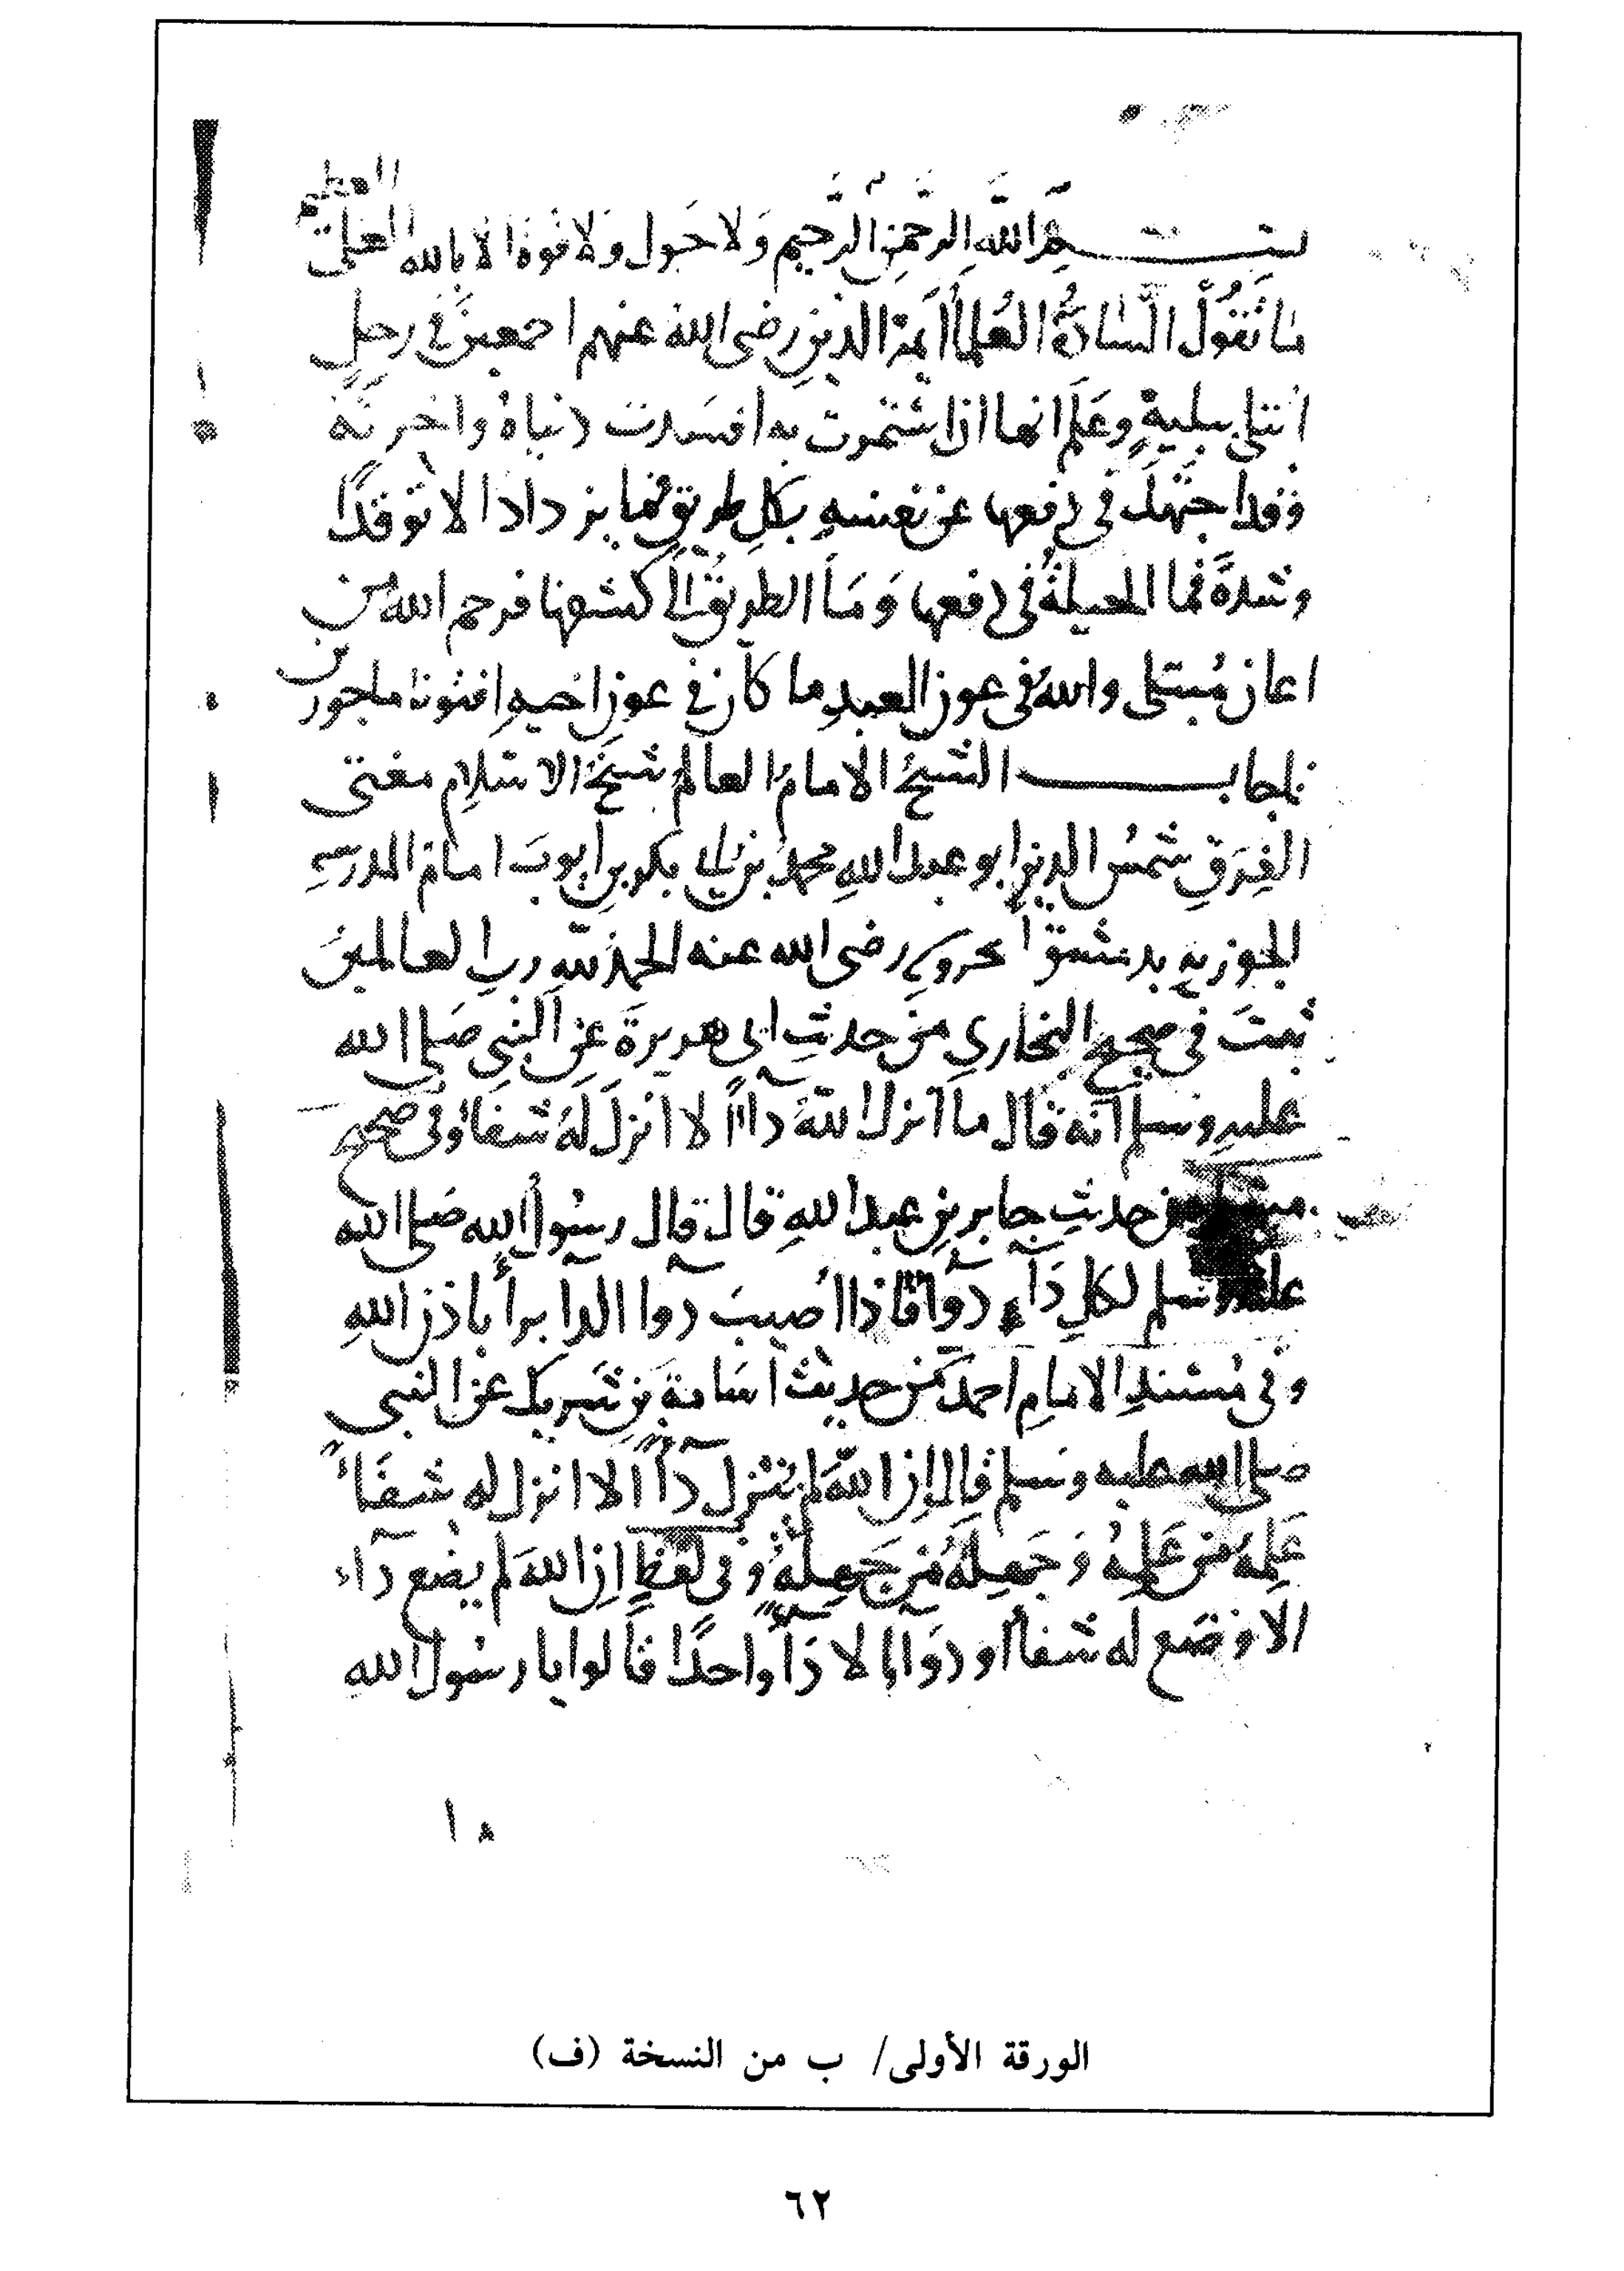 بسم الله الرحمن الرحيم ولا حول ولا قوة الا بالله العلي العظيم
ما تقول السادة العلما ايمة الدين رضى الله عنهم اجمعين في رجل
ابتلى ببلية وعلم انها اذا استمرت به افسدت دنياه واخرته
وقد اجتهد في دفعها عن نفسه بكل طريق فما يزداد الا توقدا
وشدة فما الحيلة في دفعها وما الطريق الى كشفها فرحم الله من
اعان مبتلى والله في عون العبد ما كان في عون اخيه افتونا ماجورين
فاجاب الشيخ الامام العالم شيخ الاسلام مفتى
الفرق شمس الدين ابو عبد الله محمد بن ابي بكر بن أيوب امام المدرسه
الجوزيه بدمشق المحروسه رضى الله عنه الحمد لله رب العالمين
ثبت في صحيح البخاري من حديث ابى هريرة عن النبي صلى الله
عليه وسلم انه قال ما انزل الله داءً الا انزل له شفاء وفى صحيح
مسلم من حديث جابر بن عبد الله قال قال رسول الله صلى الله
عليه وسلم لكل دآء دوآ فاذا اصيب دوا الدا برأ باذن الله
وفى مسند الامام احمد من حديث اسامة بن شريك عن النبي
صلى الله عليه وسلم قال ان الله لم ينزل دآءً الا انزل له شفاءً
علمه من علمه وجهله من جهله وفى لفظ ان الله لم يضع دآء
الا وضع له شفاء او دوآ الا دآء واحدًا قالوا يا رسول الله
الورقة الأولى/ ب من النسخة (ف)
٦٢